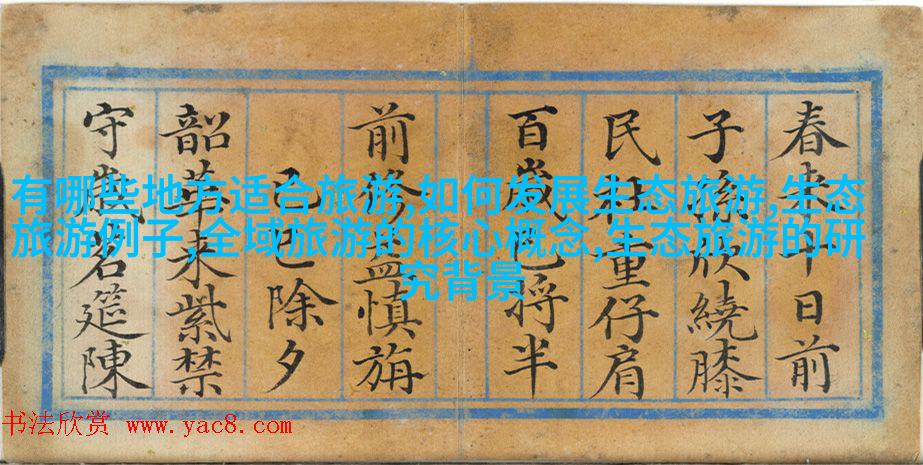 有哪些地方适合旅游,如何发展生态旅游,生态
旅游例子,全域旅游的核心概念,生态旅游的研
究背景
春来十日前
子孫欣繞膝
民社重仔肩
百歲已將半
前益慎旃
己巳除夕
韶華来紫禁
守歲名筵陳
书法欣赏 www.yac8.com